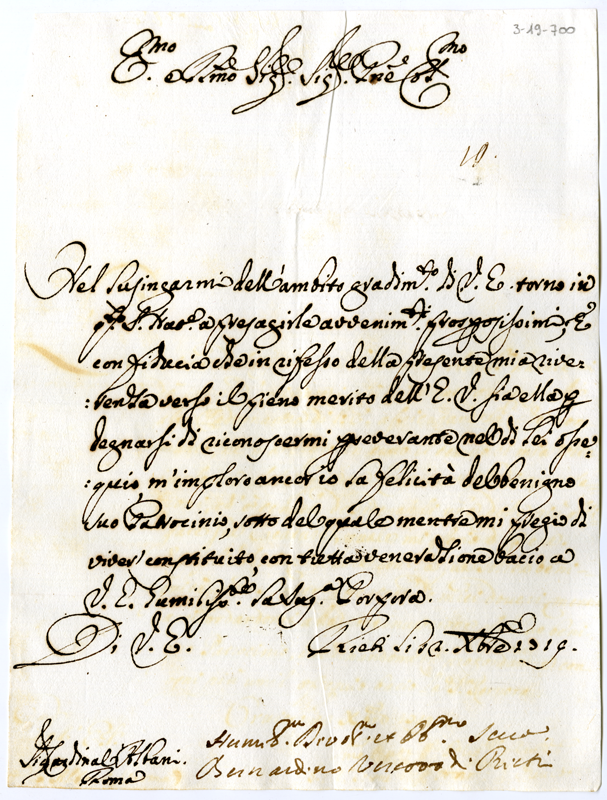 3-19-700
E.mo e R.mo Sig.r Sig.r P.ne Col.mo
19.
Nel lusingarmi dell'ambito gradim.to di V. E. torno in
q.to S. Nat.e a presagirle avvenim.ti prosperosissimi, E
con fiducia che in riflesso della presente mia rive-
:renza verso il pieno merito dell'E. V. sia ella p
degnarsi di riconoscermi perseverante nel di lei osse-
:quio, m'imploro ancor io la felicità del benigno
suo Patrocinio, sotto del quale mentre mi pregio di
viver constituito, con tutta venerazione bacio a
V. E. humiliss.te la Sag.a Porpora.
Di V. E. Rieti li Xbre 1719.
Humil.mo Devot.mo et Obb.mo Serv.e
Sig. Cardinal Albani. Bernardino Vescovo di Rieti
Roma